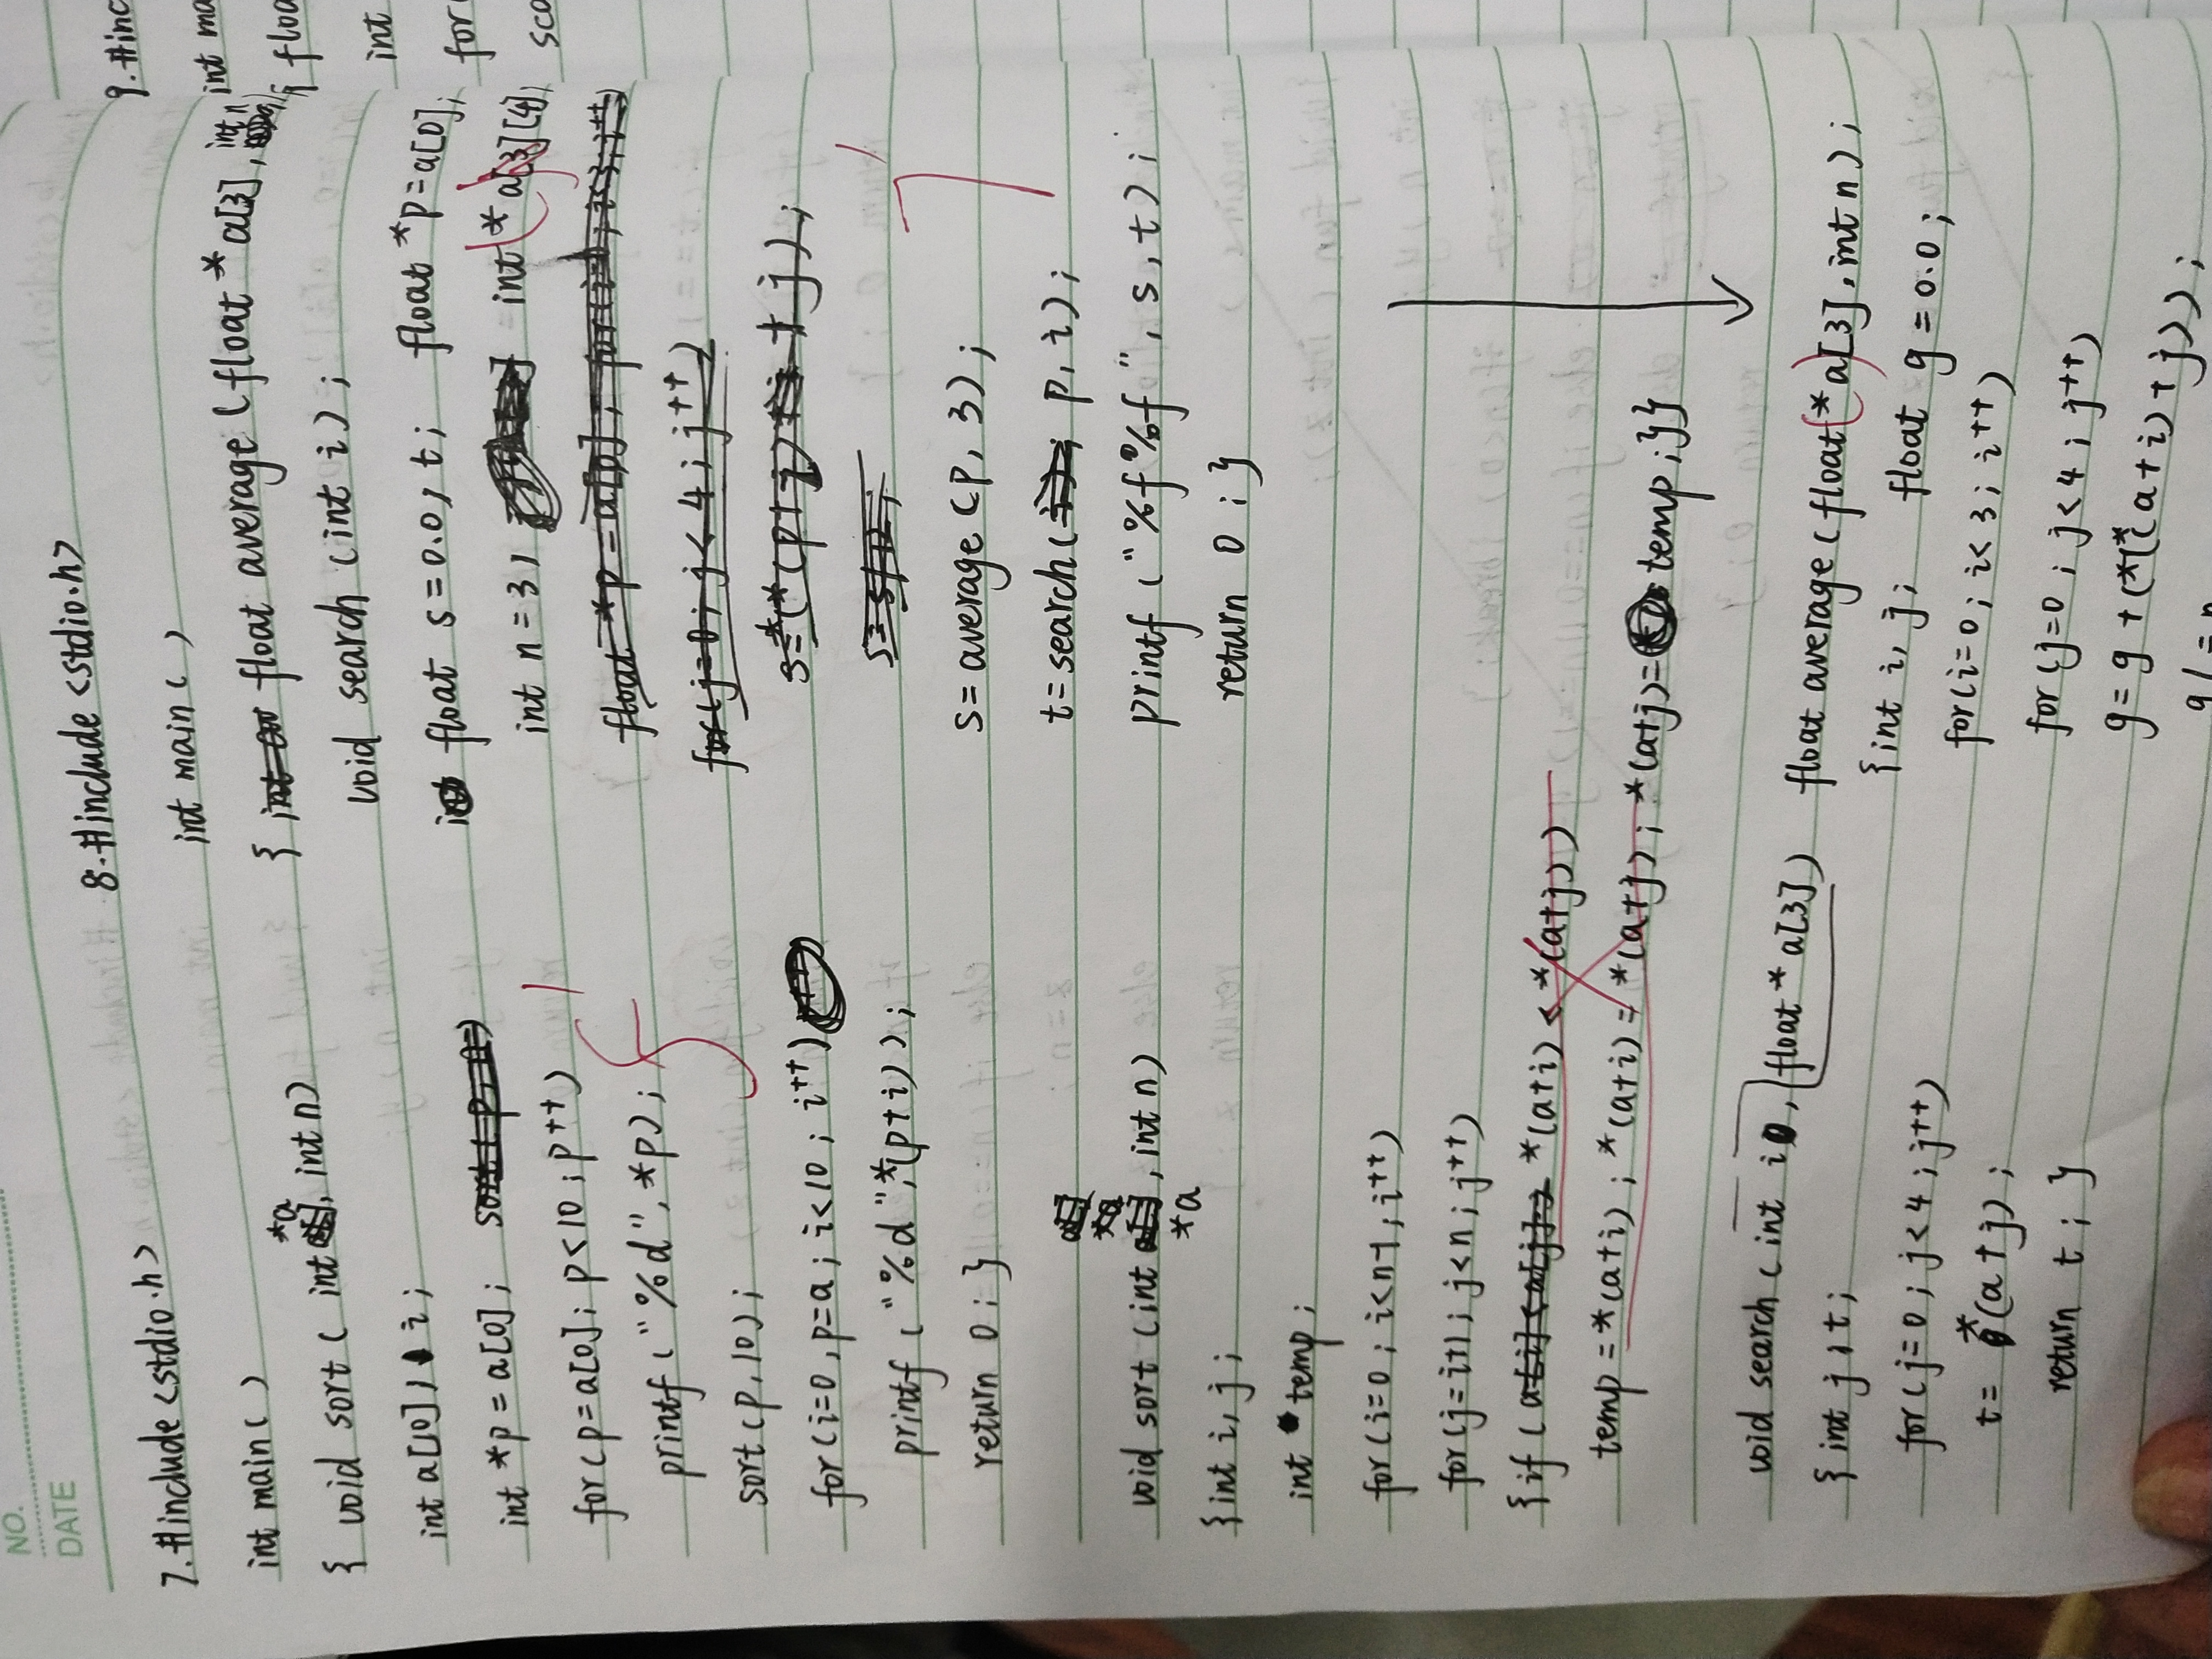 NO.
DATE
7. #include <stdio.h>
int main ( )
{ void sort ( int *a, int n)
int a[10], i;
int *p = a[0];
for (p=a[0]; p<10; p++)
printf ("%d", *p);
sort (p, 10);
for (i=0, p=a; i<10; i++)
printf ("%d", *(p+i));
return 0; }
void sort (int *a, int n)
{ int i, j;
int temp;
for (i=0; i<n-1; i++)
for (j=i+1; j<n; j++)
{ if ( *(a+i) < *(a+j))
temp = *(a+i); *(a+i) = *(a+j); *(a+j) = temp; }}
void search (int i, float * a[3])
{ int j, t;
for (j=0; j<4; j++)
t = *(a+j);
return t; }
8. #include <stdio.h>
int main ( )
{ float average (float * a[3], int n
void search (int i);
float s=0.0, t; float *p=a[0];
int n=3, int * a[3][4];
float *p=a[0]; for(i=0; i<3; i++)
for (j=0; j<4; j++)
s=average (p, 3);
t=search( p, i);
printf ("%f%f", s, t);
return 0; }
float average (float * a[3], int n);
{ int i, j; float g=0.0;
for (i=0; i<3; i++)
for (j=0; j<4; j++)
g = g + (*(*(a+i)+j));
9. #inc
int ma
{ floa
int
for (
sco